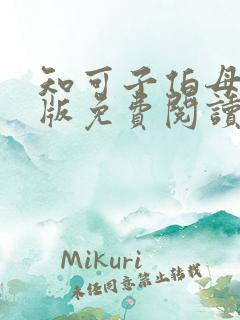 知可子伯母
版免費閱讀
Mikuri
未任同意禁止转载